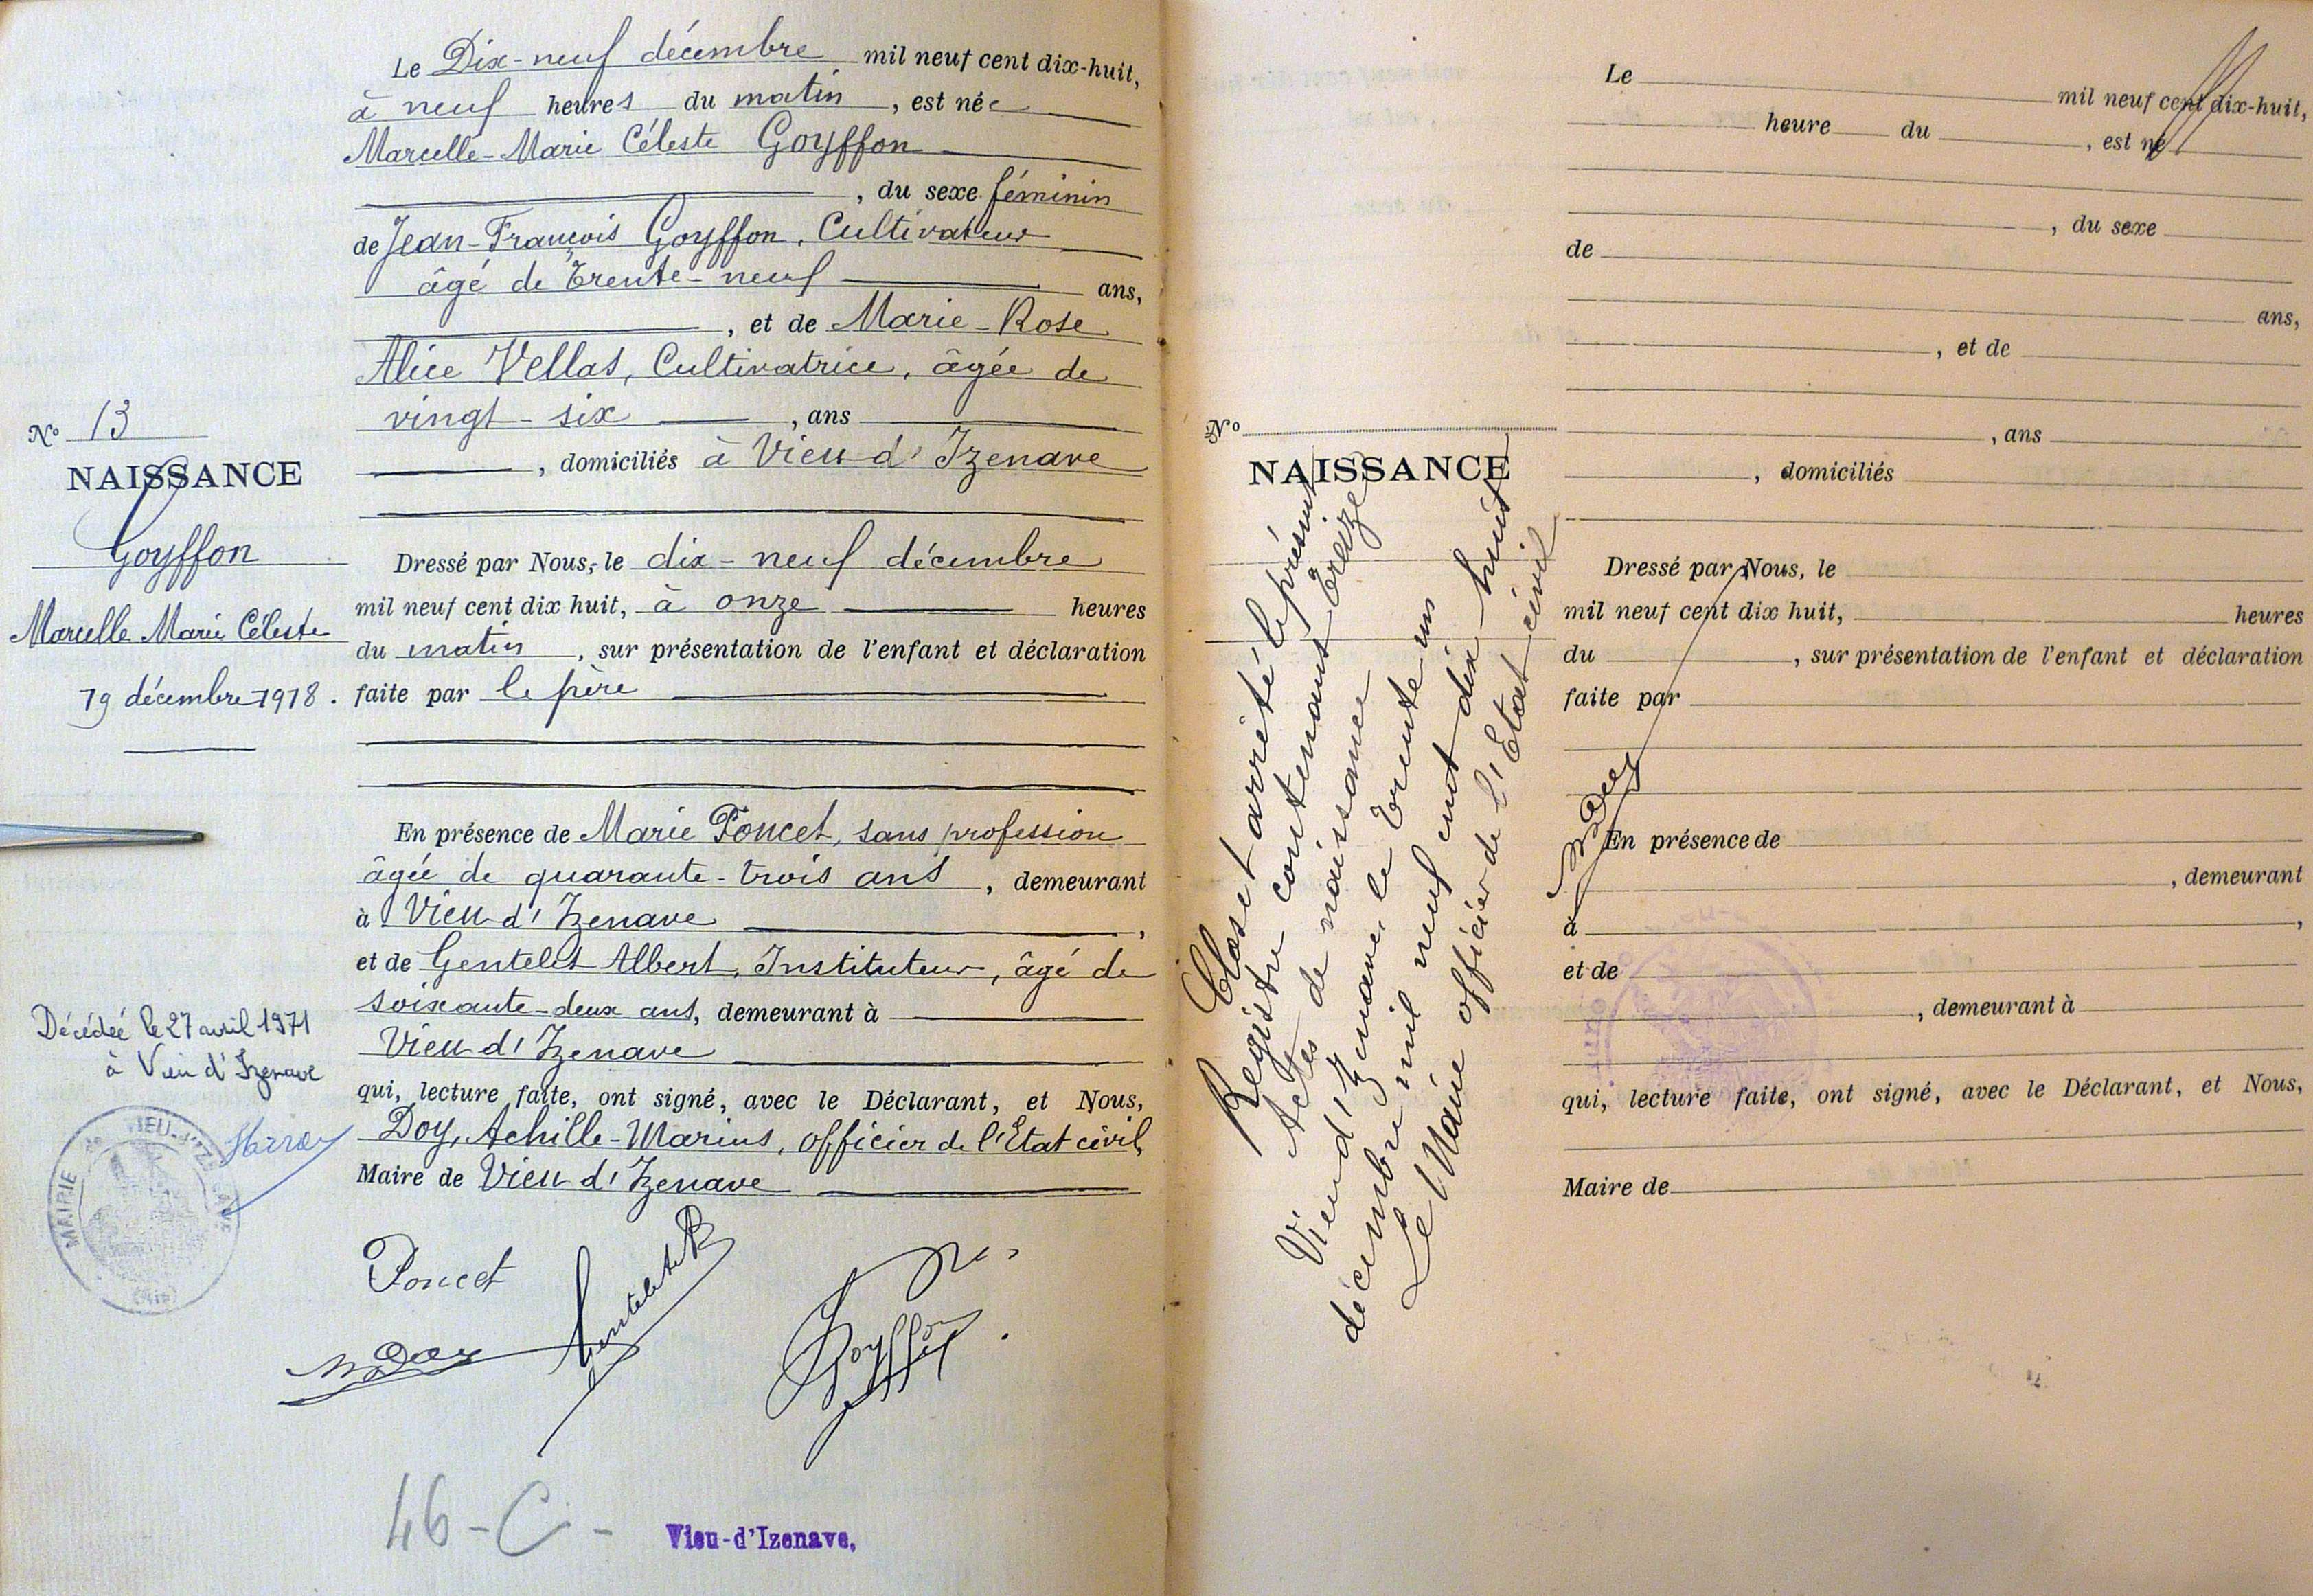 Le Dix-neuf décembre mil neuf cent dix-huit,
à neuf heures du matin, est née
Marcelle-Marie Céleste Goyffon
, du sexe féminin
de Jean-François Goyffon, Cultivateur
âgé de Trente-neuf ans,
, et de Marie-Rose
Alice Vellas, Cultivatrice, âgée de
vingt-six, ans
, domiciliés à Vieu d'Izenave
Dressé par Nous, le dix-neuf décembre
mil neuf cent dix huit, à onze heures
du matin, sur présentation de l'enfant et déclaration
faite par le père
En présence de Marie Poncet, sans profession
âgée de quarante-trois ans, demeurant
à Vieu d'Izenave,
et de Gentelet Albert, Instituteur, âgé de
soixante-deux ans, demeurant à
Vieu d'Izenave
qui, lecture faite, ont signé, avec le Déclarant, et Nous,
Doy, Achille-Marius, officier de l'Etat civil,
Maire de Vieu d'Izenave
Poncet
Gentelet
Goyffon
M Doy
N° 13
NAISSANCE
Goyffon
Marcelle Marie Céleste
19 décembre 1918.
Décédée le 27 avril 1971
à Vieu d'Izenave
MAIRIE de VIEU-D'IZENAVE
(Ain)
46-C-
Vieu-d'Izenave,
N°
NAISSANCE
Clos et arrêté le présent
Registre contenant treize
Actes de naissance
Vieu d'Izenave, le trente un
décembre mil neuf cent dix-huit
Le Maire officier de l'Etat civil
M Doy
Le mil neuf cent dix-huit,
heure du , est né
, du sexe
de
ans,
, et de
, ans
, domiciliés
Dressé par Nous, le
mil neuf cent dix huit, heures
du , sur présentation de l'enfant et déclaration
faite par
En présence de
, demeurant
à ,
et de
, demeurant à
qui, lecture faite, ont signé, avec le Déclarant, et Nous,
Maire de